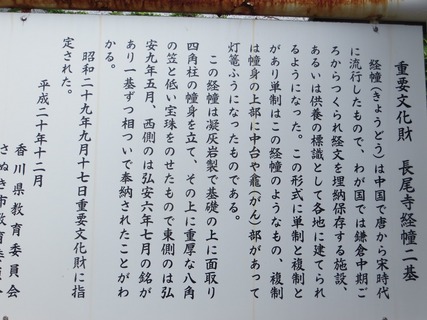 重要文化財　長尾寺経幢二基
経幢（きょうどう）は中国で唐から宋時代
に流行したもので、わが国では鎌倉中期ご
ろからつくられ経文を埋納保存する施設、
あるいは供養の標識として各地に建てられ
るようになった。この形式に単制と複制と
があり単制はこの経幢のようなもの、複制
は幢身の上部に中台や龕（がん）部があって
灯篭ふうになったものである。
この経幢は凝灰岩製で基礎の上に面取り
四角柱の幢身を立て、その上に重厚な八角
の笠と低い宝珠をのせたもので東側のは弘
安九年五月、西側のは弘安六年七月の銘が
あり一基ずつ相ついで奉納されたことがわ
かる。
昭和二十九年九月十七日重要文化財に指
定された。
平成二十年十二月
香川県教育委員会
さぬき市教育委員会